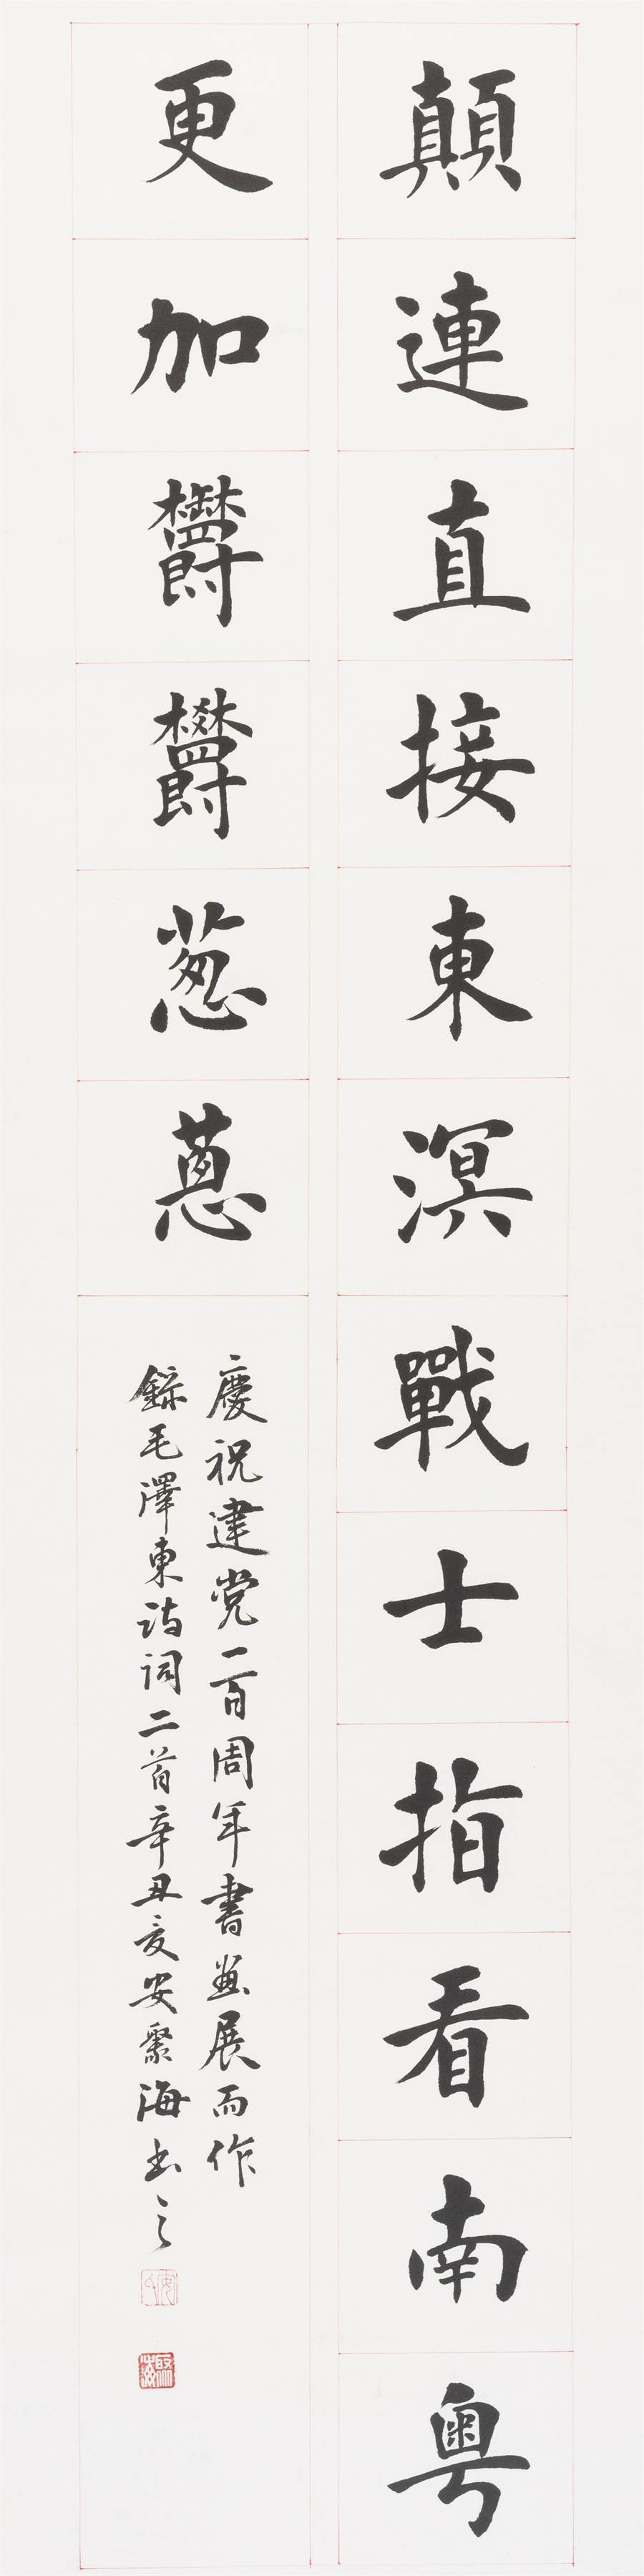 顛連直接東溟戰士指看南粵
更加欝欝葱蔥
慶祝建党一百周年書畫展而作
錄毛澤東诗词二首辛丑夏安聚海书之
聚海